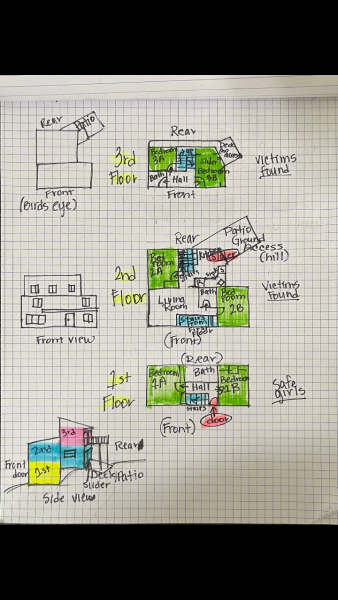 Rear
Patio
Front
(Birds eye)
3rd
Floor
Rear
Bedroom
3A
Bath
Hall
Slider
Bedroom
3B
Deck
no
access
Front
Victims
found
Front view
2nd
Floor
Rear
Bedroom
2A
Living
Room
Kitchen
Slider
Bath
Bed
room
2B
Stairs from
First Floor
(Front)
Patio
Ground
Access
(hill)
Victims
found
1st
Floor
(Rear)
Bedroom
1A
Bath
Hall
Bedroom
1B
Stairs
(Front)
door
Safe
girls
3rd
2nd
1st
Front
door
Rear
Deck/Patio
Slider
Side view